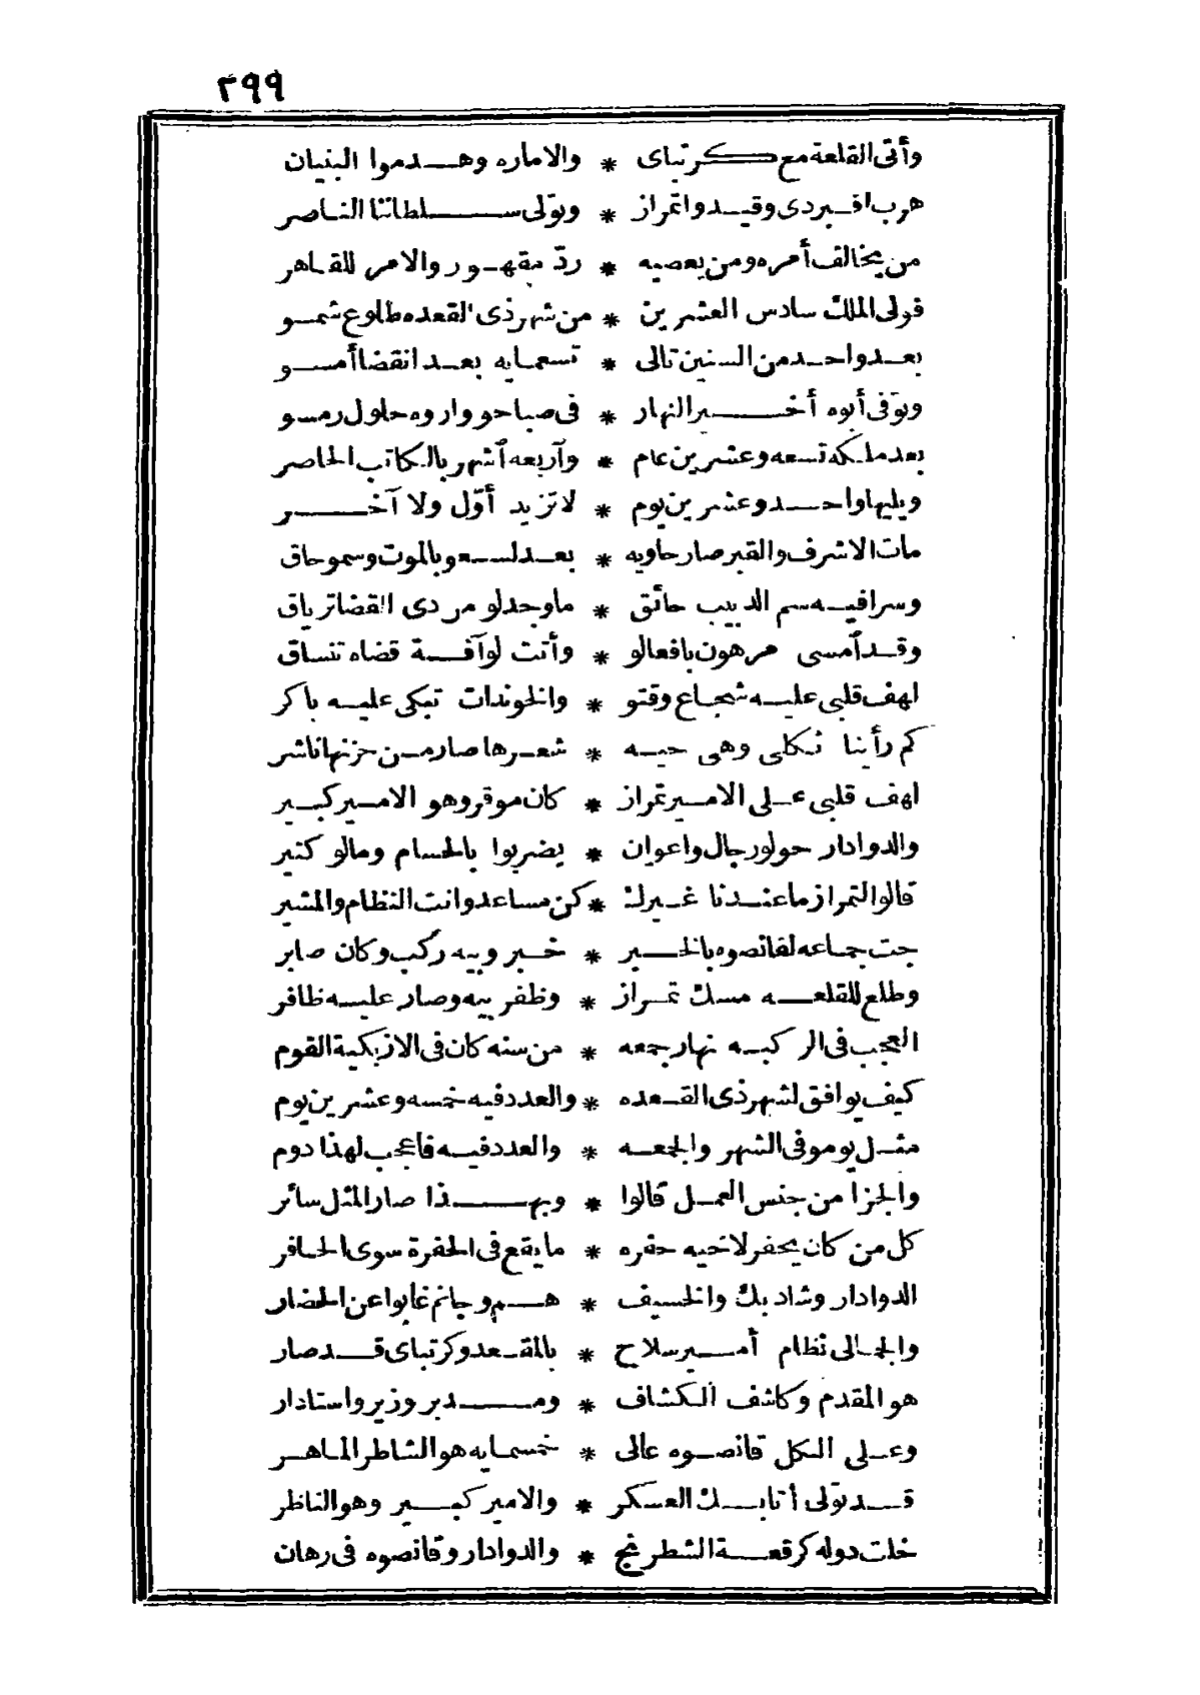 ٢٩٩
وأتى القلعة مع كرتباى * والاماره وهدموا البنيان
هرب اقبردى وقيدوا تمراز * وتولى سلطاننا الناصر
من يخالف أمره ومن يعصيه * ردّ مقهور والامر للقاهر
فولى الملك سادس العشرين * من شهر ذى القعده طلوع شمسو
بعد واحد من السنين تالى * تسعمايه بعد انقضا أمسو
وتوفى أبوه أخير النهار * فى صباحو واروه حلول رمسو
بعد ملكه تسعه وعشرين عام * وأربعه أشهر بالكاتب الحاصر
ويليها واحد وعشرين يوم * لا تزيد أوّل ولا آخر
مات الاشرف والقبر صار حاويه * بعد لسعو بالموت وسمو حاق
وسرا فيه سم الدبيب حائق * ما وجد لو من دى القضا ترياق
وقد أمسى مرهون بافعالو * وأتت لو آفة قضاه تنساق
لهف قلبى عليه شجاع وقتو * والخوندات تبكى عليه باكر
كم رأينا ثكلى وهى حيه * شعرها صار من حزنها ناشر
لهف قلبى على الامير تمراز * كان موقر وهو الامير كبير
والدوادار حولو رجال واعوان * يضربوا بالحسام ومالو كثير
قالوا لتمراز ما عندنا غيرك * كن مساعد وانت النظام والمشير
جت جماعه لقانصوه بالخبر * خبروبيه ركب وكان صابر
وطلع للقلعه مسك تمراز * وظفر بيه وصار عليه ظافر
العجب فى الركبه نهار جمعه * من سنه كان فى الازبكية القوم
كيف يوافق لشهر ذى القعده * والعدد فيه خمسه وعشرين يوم
مثل يومو فى الشهر والجمعه * والعدد فيه فاعجب لهذا دوم
والجزا من جنس العمل قالوا * وبهذا صار المثل سائر
كل من كان يحفر لاخيه حفره * ما يقع فى الحفرة سوى الحافر
الدوادار وشاد بك والخسيف * هم وجانم غابوا عن الحضار
والجمالى نظام أمير سلاح * بالمقعد وكرتباى قد صار
هو المقدم وكاشف الكشاف * ومدبر وزير واستادار
وعلى الكل قانصوه عالى * خمسمايه هو الشاطر الماهر
قد تولى أتابك العسكر * والامير كبير وهو الناظر
خلت دوله كرقعة الشطرنج * والدوادار وقانصوه فى رهان